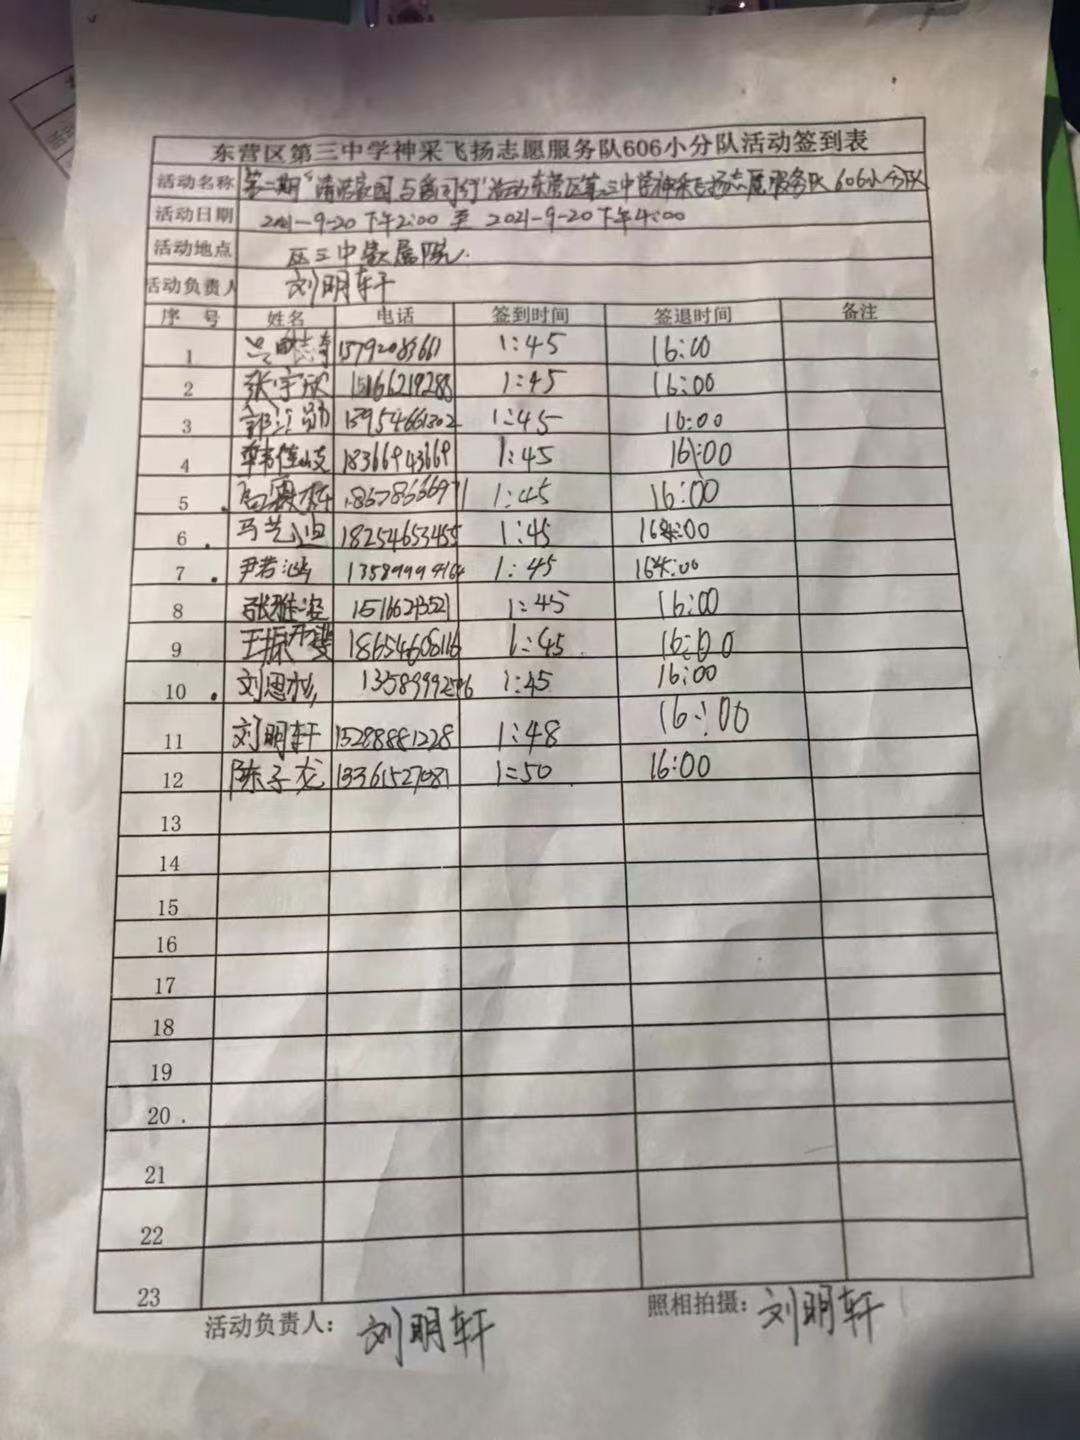 东营区第三中学神采飞扬志愿服务队606小分队活动签到表
活动名称 第二期“清洁家园 与 同行”活动东营区第三中学神采飞扬志愿服务队 606小分队
活动日期 2021-9-20下午2:00 至 2021-9-20下午4:00
活动地点 区三中家属院.
活动负责人 刘明轩
序 号 姓名 电话 签到时间 签退时间 备注
1 1:45 16:00
2 张宇欣 15166219288 1:45 16:00
3 郭江勋 13954661302 1:45 16:00
4 18366943669 1:45 16:00
5 1:45 16:00
6 马艺 18254653455 1:45 16:00
7 尹若鸿 1:45 16:00
8 张雅 1:45 16:00
9 王振斐 18654608116 1:45 16:00
10 刘恩 1:45 16:00
11 刘明轩 15288881228 1:48 16:00
12 陈子龙 13361527081 1:50 16:00
13
14
15
16
17
18
19
20
21
22
23
活动负责人： 刘明轩 照相拍摄： 刘明轩